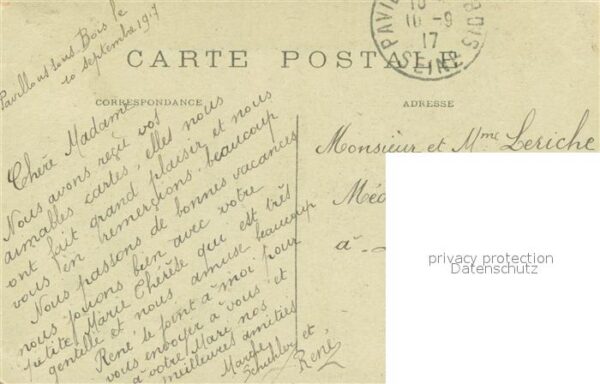 Pavillons sous Bois le
10 septembre 1917
CARTE POSTALE
PAVIL BOIS
10-9
17
SEINE
CORRESPONDANCE
ADRESSE
Chère Madame
Nous avons reçu vos
aimables cartes, elles nous
ont fait grand plaisir et nous
vous en remerçions beaucoup
Nous passons de bonnes vacances
nous jouons bien avec votre
petite Marie Thérèse qui est très
gentille et nous amuse beaucoup
René se joint à moi pour
vous envoyer à vous et
à votre Mare nos
meilleures amitiés
et
René
Monsieur et Mme Leriche
à
privacy protection
Datenschutz